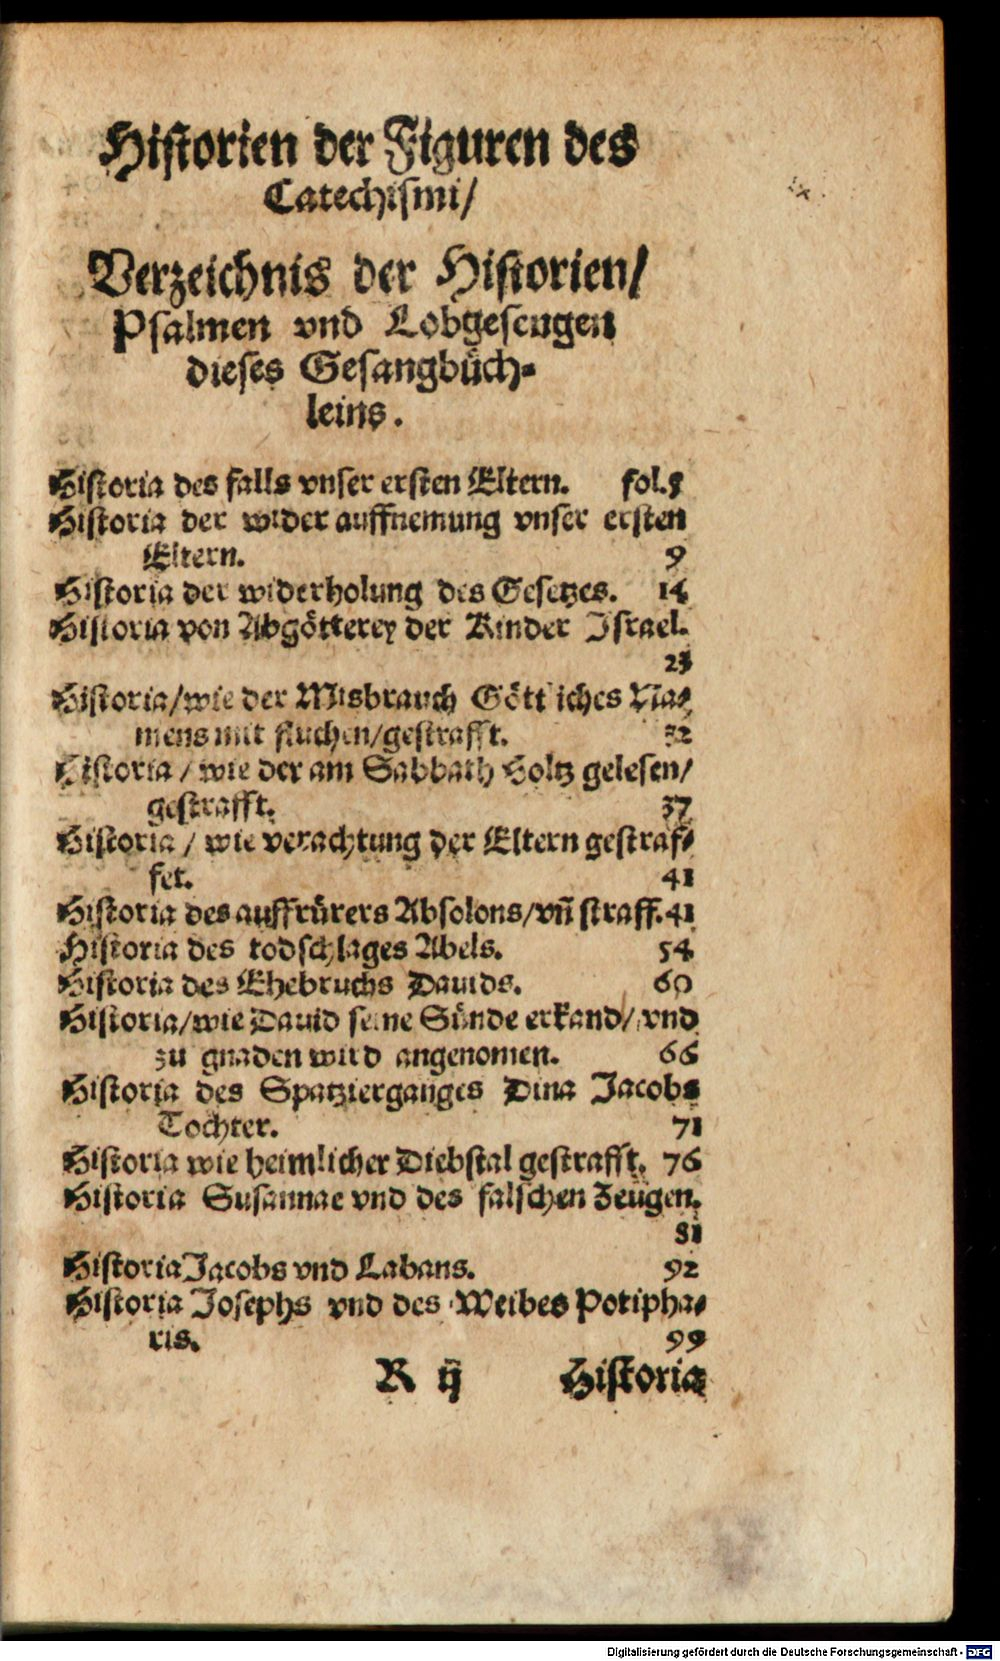 Historien der Figuren des
Catechismi/
Verzeichnis der Historien/
Psalmen vnd Lobgesengen
dieses Gesangbüch-
leins.
Historia des falls vnser ersten Eltern. fol.5
Historia der wider auffnemung vnser ersten
Eltern. 9
Historia der widerholung des Gesetzes. 14
Historia von Abgötterey der Kinder Israel.
23
Historia/wie der Misbrauch Göttliches Na-
mens mit fluchen/gestrafft. 32
Historia / wie der am Sabbath Holtz gelesen/
gestrafft. 37
Historia / wie verachtung der Eltern gestraf-
fet. 41
Historia des auffrürers Absolons/vñ straff.41
Historia des todschlages Abels. 54
Historia des Ehebruchs Dauids. 60
Historia/wie Dauid seine Sünde erkand/vnd
zu gnaden wird angenomen. 66
Historia des Spatzierganges Dina Jacobs
Tochter. 71
Historia wie heimlicher Diebstal gestrafft. 76
Historia Susannae vnd des falschen Zeugen.
81
Historia Jacobs vnd Labans. 92
Historia Josephs vnd des Weibes Potipha-
ris. 99
R ij Historia
Digitalisierung gefördert durch die Deutsche Forschungsgemeinschaft - DFG